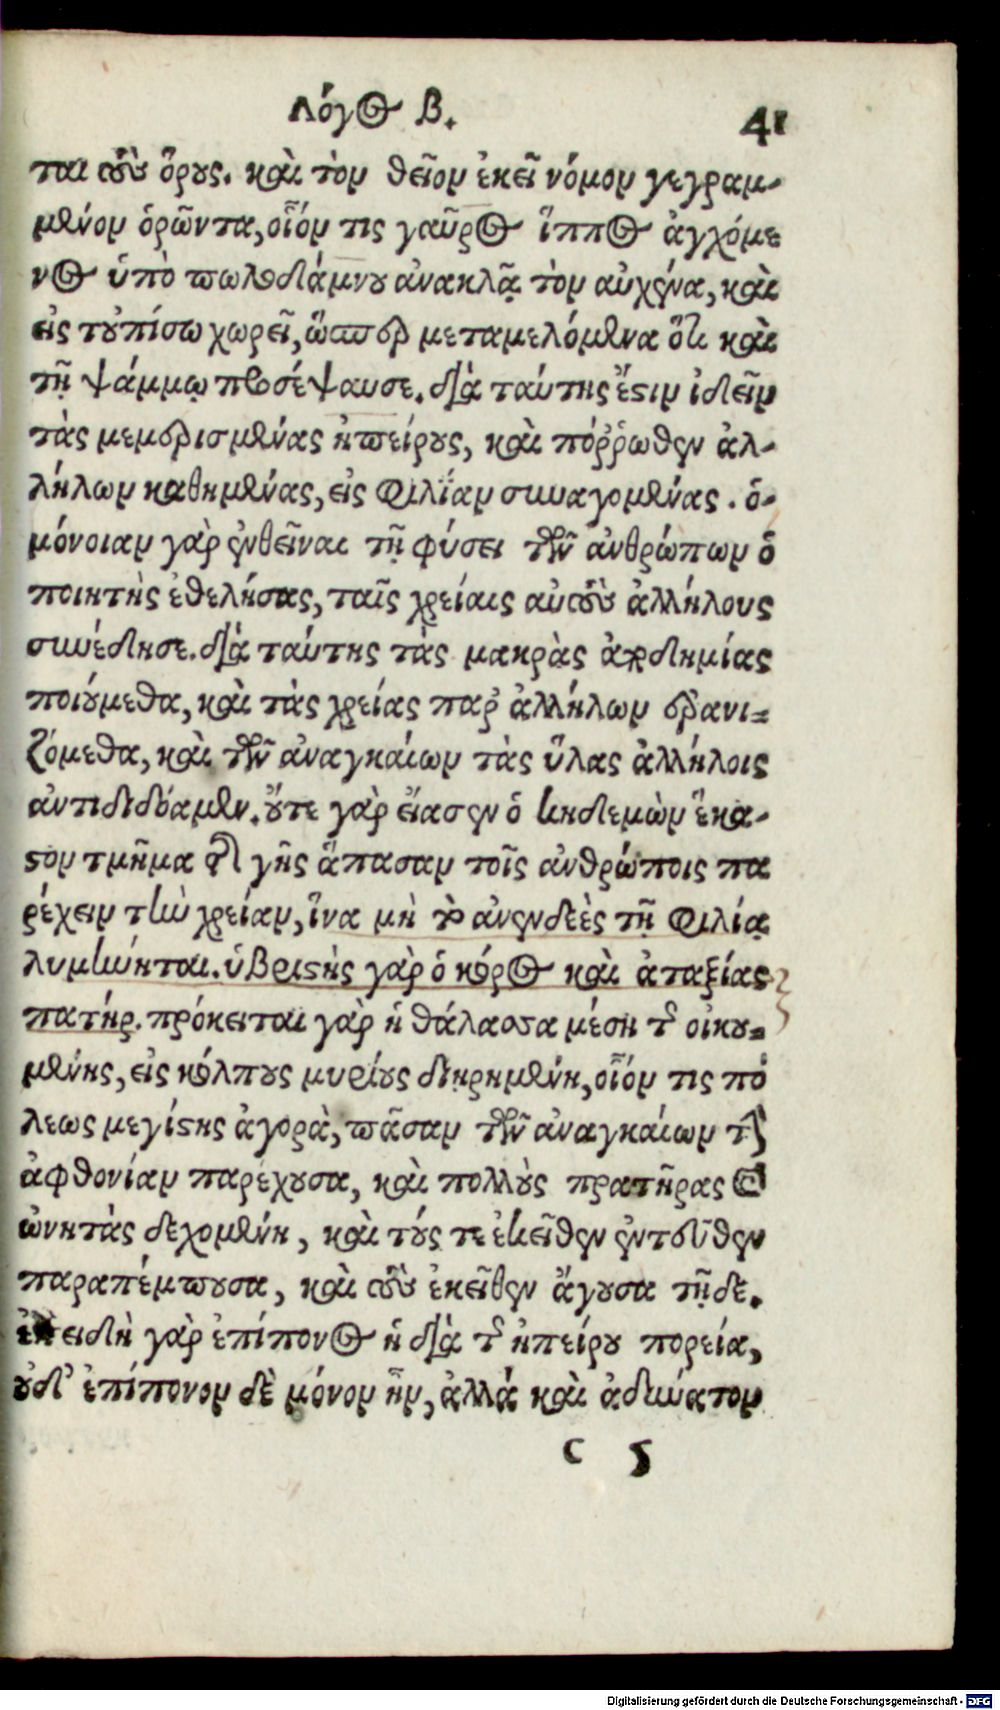 Λόγος Β. 41
ται τοὺς ὅρους. καὶ τὸν θεῖον ἐκεῖ νόμον γεγραμ-
μένον ὁρῶντα, οἷόν τις γαῦρος ἵππος ἀγχόμε
νος ὑπὸ πωλοδάμνου ἀνακλᾷ τὸν αὐχένα, καὶ
εἰς τοὐπίσω χωρεῖ, ὥσπερ μεταμελόμενα ὅτι καὶ
τῇ ψάμμῳ προσέψαυσε. διὰ ταύτης ἔστιν ἰδεῖν
τὰς μεμερισμένας ἠπείρους, καὶ πόῤῥωθεν ἀλ-
λήλων καθημένας, εἰς φιλίαν συναγομένας. ὁ-
μόνοιαν γὰρ ἐνθεῖναι τῇ φύσει τῶν ἀνθρώπων ὁ
ποιητὴς ἐθελήσας, ταῖς χρείαις αὐτοὺς ἀλλήλους
συνέδησε. διὰ ταύτης τὰς μακρὰς ἀποδημίας
ποιούμεθα, καὶ τὰς χρείας παρ' ἀλλήλων ἐρανι-
ζόμεθα, καὶ τῶν ἀναγκαίων τὰς ὕλας ἀλλήλοις
ἀντιδιδόαμεν. οὔτε γὰρ εἴασεν ὁ κηδεμὼν ἕκα-
στον τμῆμα τῆς γῆς ἅπασαν τοῖς ἀνθρώποις πα
ρέχειν τὴν χρείαν, ἵνα μὴ τὸ ἀνενδεὲς τῇ φιλίᾳ
λυμήνηται. ὑβριστὴς γὰρ ὁ κόρος καὶ ἀταξίας
πατήρ. πρόκειται γὰρ ἡ θάλασσα μέση τῆς οἰκου-
μένης, εἰς κόλπους μυρίους διῃρημένη, οἷόν τις πό
λεως μεγίστης ἀγορὰ, πᾶσαν τῶν ἀναγκαίων τὴν
ἀφθονίαν παρέχουσα, καὶ πολλοὺς πρατῆρας καὶ
ὠνητὰς δεχομένη, καὶ τούς τε ἐκεῖθεν ἐντεῦθεν
παραπέμπουσα, καὶ τοὺς ἐκεῖθεν ἄγουσα τῇδε.
ἐπειδὴ γὰρ ἐπίπονος ἡ διὰ τῆς ἠπείρου πορεία,
οὐδ' ἐπίπονον δὲ μόνον ἦν, ἀλλὰ καὶ ἀδύνατον
c 5
Digitalisierung gefördert durch die Deutsche Forschungsgemeinschaft - DFG